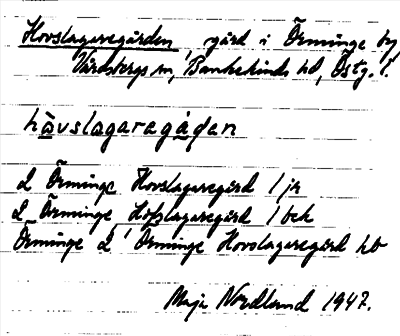 Hovslagaregården, gård i Örminge by,
Vårdsbergs sn, Bankekinds hd, Östg. l.
håvslagaregåḍan
2 Örminge Hovslagaregård / jr
2 Örminge Hofslagaregård / bek
Örminge 2 Örminge Hovslagaregård hb
Maja Nordlund 1947.